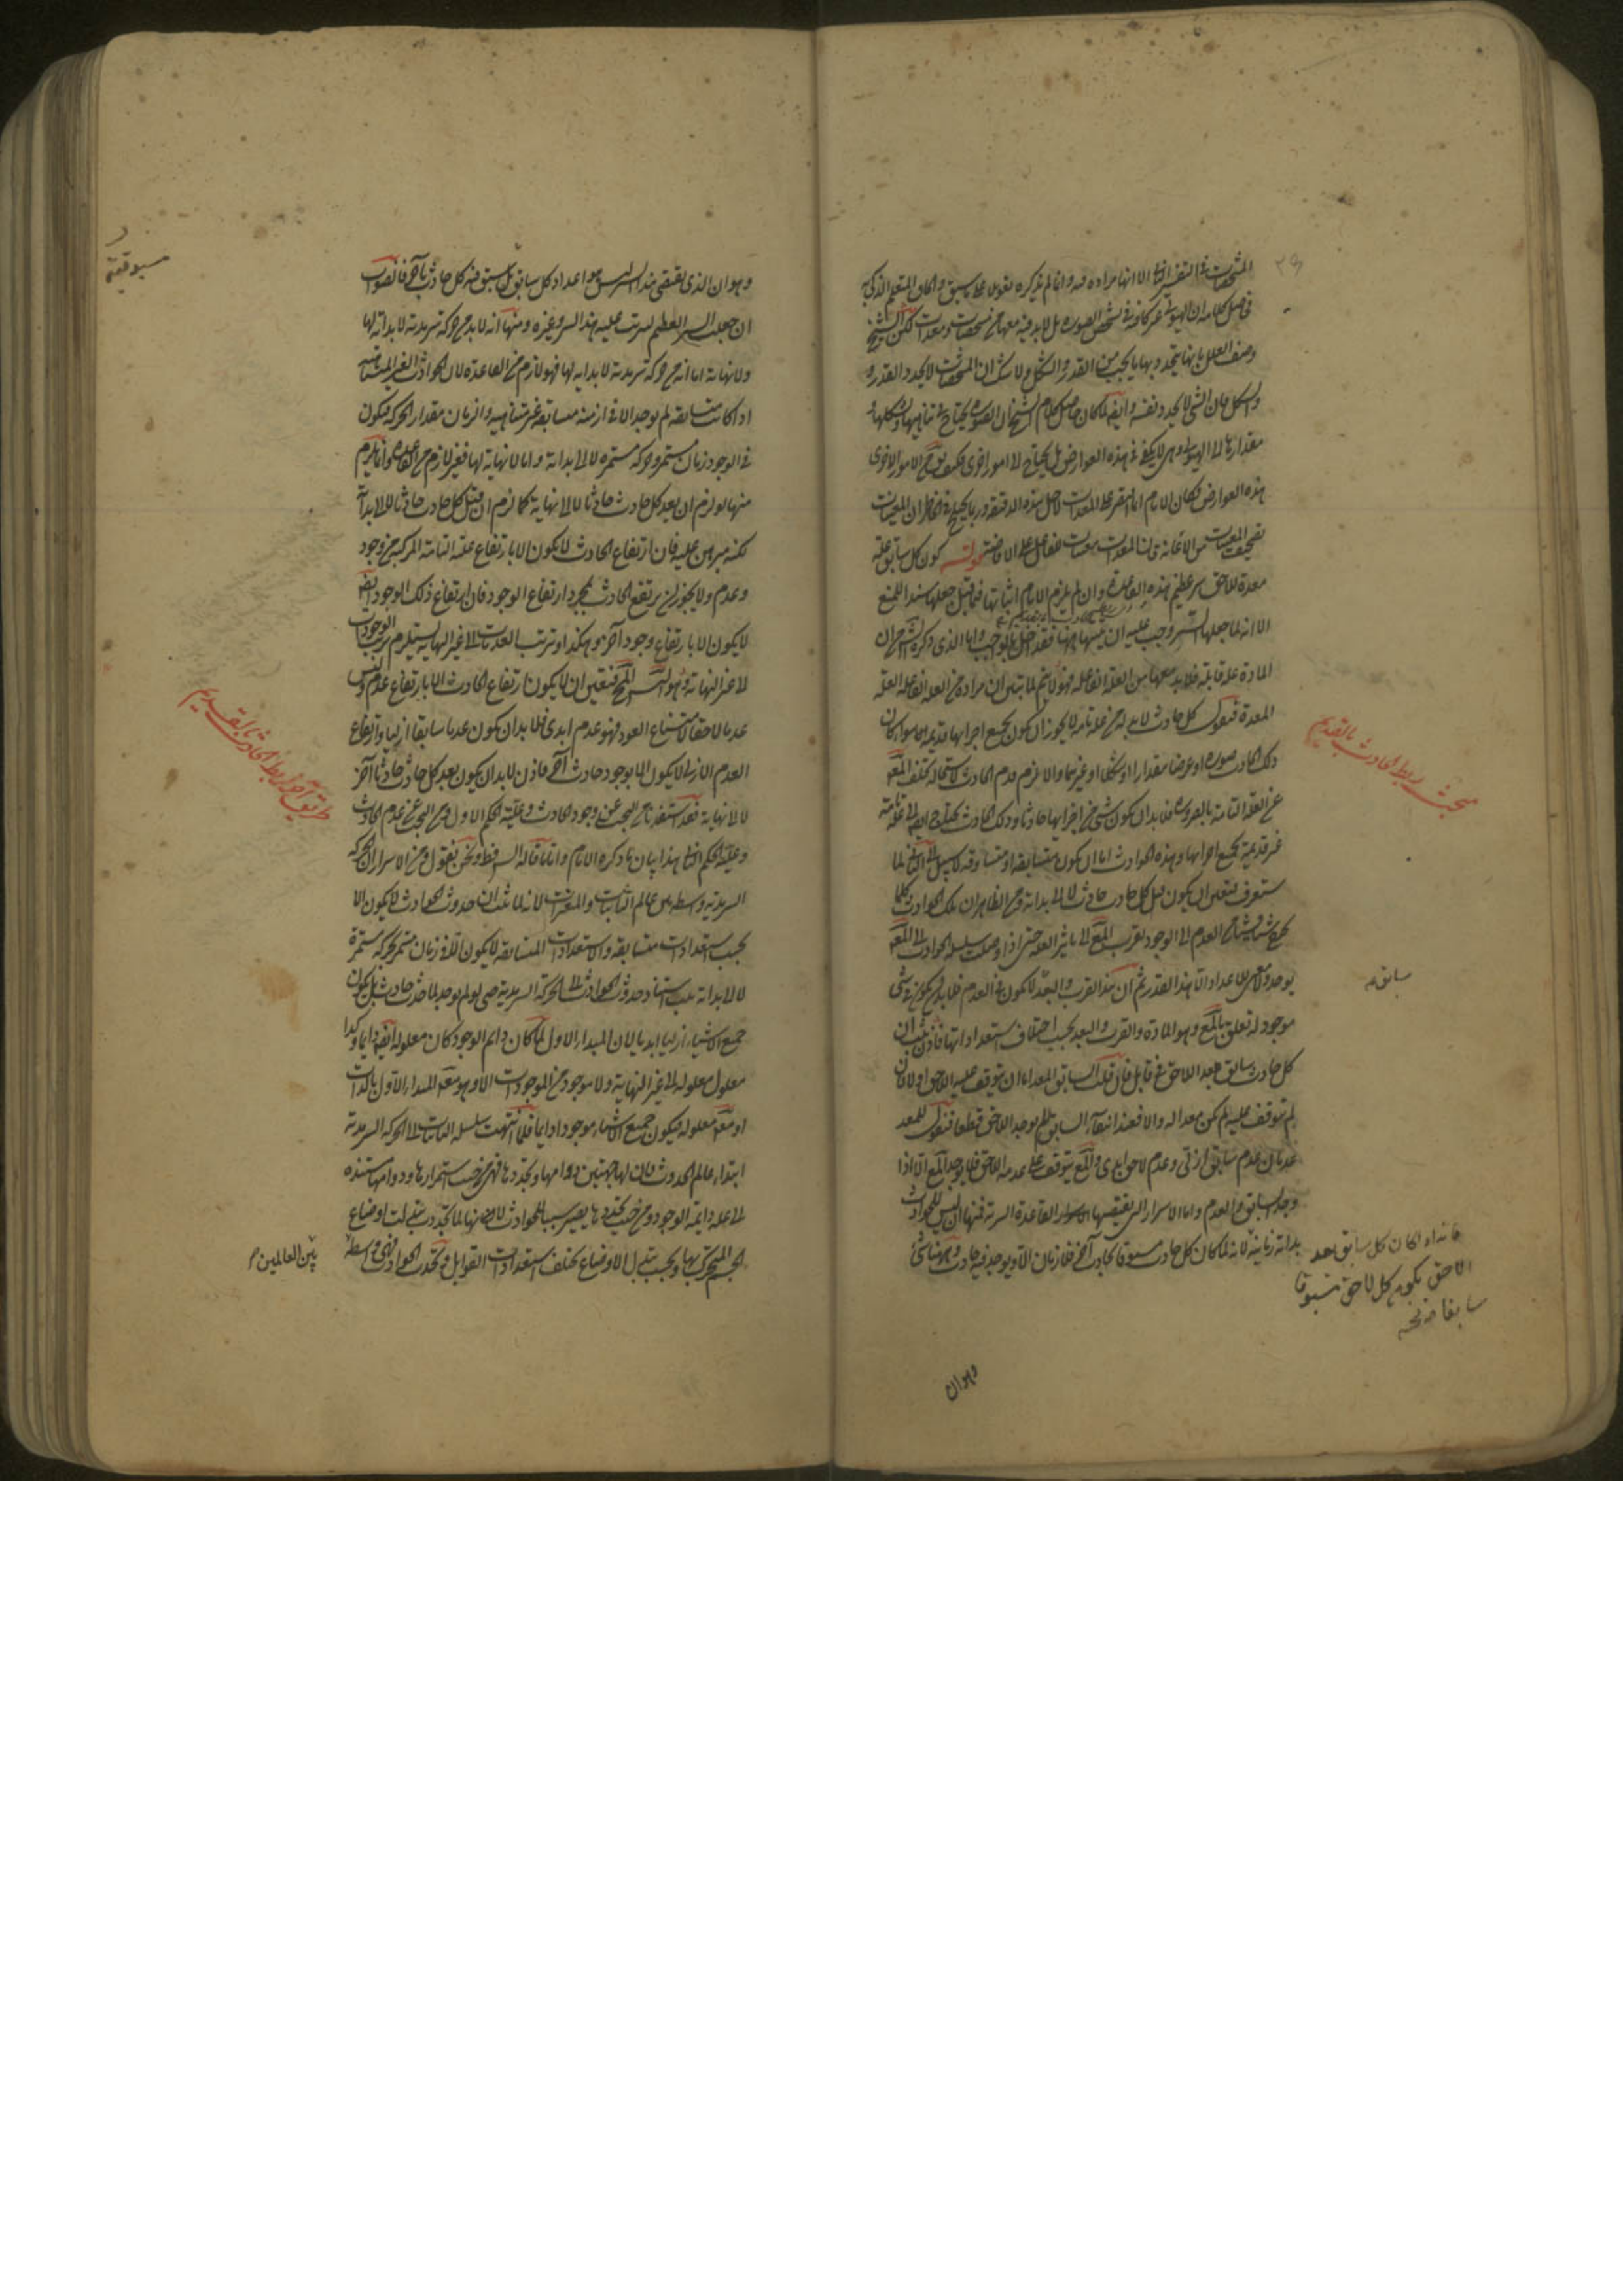 المشخصات في التغير الا انها مراده منه وانما لم يذكره تعويلا على ما سبق
في اصل كلامه ان الهيولى غير كافية في تشخص الصورة بل لا بد فيه معها من مشخصات ومعدات لكن الشيخ
وصف العلل بانها يتحدد بها ما يجب من القدر والشكل ولا شك ان المشخصات لا يحدد القدر و
والشكل فان الشيء لا يحدد نفسه وايضا لما كان حاصل كلام الشيخ ان الصورة يحتاج في تناهيها وتشكلها و
مقدارها الى الهيولى وهي لا يكفي في هذه العوارض بل يحتاج الى امور اخرى
هذه العوارض فكان الامام انما اقتصر على المعدات لاجل هذه الدقيقة وربما يختلج في الخاطر ان المعينات
كون كل سابق علة
معدة للاحق سر عظيم هذه القاعدة وان لم يلزم الامام اثباتها فيما قبل جعلها سندا للمنع
الا انه لما جعلها السر وجب عليه ان يبينها ههنا فقد اخل بالواجب واما الذي ذكره الشرح ان
المادة علة قابلة فلا بد معها من العلة الفاعلة فهو لا يتم لما تبين ان مراده من العلة الفاعلة العلة
المعدة فنقول كل حادث لا بد له من علة تامة لا يجوز ان يكون جميع اجزائها قديمة سواء كان
ذلك الحادث صورة او عرضا مقدارا او شكلا او غيرهما والا لزم قدم الحادث لاستحالة تخلف المع
عن العلة التامة بالضرورة فلا بد ان يكون شيء من اجزائها حادثا وذلك الحادث يحتاج ايضا الى علة تامة
غير قديمة بجميع اجزائها وهذه الحوادث اما ان يكون متسابقة او متساوقة لا سبيل الى الثاني لما
ستعرف فتعين ان يكون قبل كل حادث حادث لا الى بداية ومن الظاهر ان تلك الحوادث كلما
يخرج شيئا فشيئا من العدم الى الوجود يقرب المع الى تاثير العلة حتى اذا وصلت سلسلة الحوادث الى المع
يوجد ولا معنى للاعداد الا هذا القدر ثم ان هذا القرب والبعد لا يكون في العدم فلا بد ان يكون في شيء
موجود له تعلق بالمع وهو المادة والقرب والبعد بحسب اختلاف استعداداتها فاذن ثبت ان
كل حادث سابق يعد اللاحق في قابل فان قلت السابق المعد اما ان يتوقف عليه اللاحق او لا فان
لم يتوقف عليه لم يكن معدا له والا فعند انتفاء السابق لم يوجد اللاحق قطعا فنقول للمعد
عدمان عدم سابق ازلي وعدم لاحق ابدي والمع يتوقف على عدمه اللاحق فلا يوجد المع الا اذا
وجد السابق والعدم واما الاسرار التي يقتضيها القاعدة السرية فمنها ان ليس للحوادث
بداية زمانية لانه لما كان كل حادث مسبوقا بحادث آخر فلا زمان الا ويوجد فيه حادث
مبحث ربط الحادث بالقديم
سابق
فانه اذا كان كل سابق يعد
اللاحق يكون كل لاحق مسبوقا
وهوان
وهو ان الذي يقتضي هذا السر ليس هو اعداد كل سابق بل سبق كل حادث بآخر فالصواب
ان جعل السر العظيم ليترتب عليه هذا السر وغيره ومنها انه لا بد من حركة سرمدية لا بداية لها
ولا نهاية اما انه من حركة سرمدية لا بداية لها فهو لازم من القاعدة لان الحوادث الغير المتناهية
اذا كانت متسابقة لم يوجد الا في ازمنة متسابقة غير متناهية والزمان مقدار الحركة فيكون
في الوجود زمان مستمر وحركة مستمرة لا الى بداية واما لا نهاية لها فغير لازم من القاعدة وانما يلزم
منها لو لزم ان بعد كل حادث حادثا لا الى نهاية كما لزم ان قبل كل حادث حادثا لا الى بداية
لكنه مبرهن عليه فان ارتفاع الحادث لا يكون الا بارتفاع علته التامة المركبة من وجود
وعدم ولا يجوز ان يرتفع الحادث بمجرد ارتفاع الوجود فان ارتفاع ذلك الوجود ايضا
لا يكون الا بارتفاع وجود آخر وهكذا وترتب العدمات الى غير النهاية يستلزم ترتب الوجودات
لا الى غير النهاية وهو التس المح فتعين ان لا يكون ارتفاع الحادث الا بارتفاع عدم وليس
عدما لاحقا لامتناع العود فهو عدم ابدي فلا بد ان يكون عدما سابقا ازليا وارتفاع
العدم الازلي لا يكون الا بوجود حادث آخر فاذن لا بد ان يكون بعد كل حادث حادثا آخر
لا الى نهاية فقد استفدنا من البحث عن وجود الحادث وعليته الحكم الاول ومن البحث عن عدم الحادث
وعليته الحكم الثاني هذا بيان ما ذكره الامام واقتفاه له الشرح فقط ونحن نقول ومن الاسرار ان الحركة
السرمدية واسطة بين عالم الثابتات والمتغيرات لانه لما ثبت ان حدوث الحوادث لا يكون الا
بحسب استعدادات متسابقة والاستعدادات المتسابقة لا يكون الا في زمان مستمر بحركة مستمرة
لا الى بداية يجب استناد حدوث الحوادث الى الحركة السرمدية حتى لو لم يوجد لما حدث حادث بل يكون
جميع الاشياء ازليا ابديا لان المبدأ الاول لما كان دائم الوجود كان معلوله ايضا دائما وكذا
معلول معلوله الى غير النهاية ولا موجود من الموجودات الا وهو معلول المبدأ الاول بالذات
او معلول معلوله فيكون جميع الاشياء موجودا دائما فلما انتهت سلسلة الثابتات الى الحركة السرمدية
ابتداء عالم الحدوث فان لها جهتين دوامها وتجددها فهي من حيث استمرارها ودوامها مستندة
الى علة دائمة الوجود ومن حيث تجددها يصير سببا للحوادث لانها لما تجددت تبدلت اوضاع
الجسم المتحرك بها وبحسب تبدل الاوضاع يختلف استعدادات القوابل وتحدث الحوادث فهي واسطة
بين العالمين
طريق آخر لربط الحادث بالقديم
مسبوقية